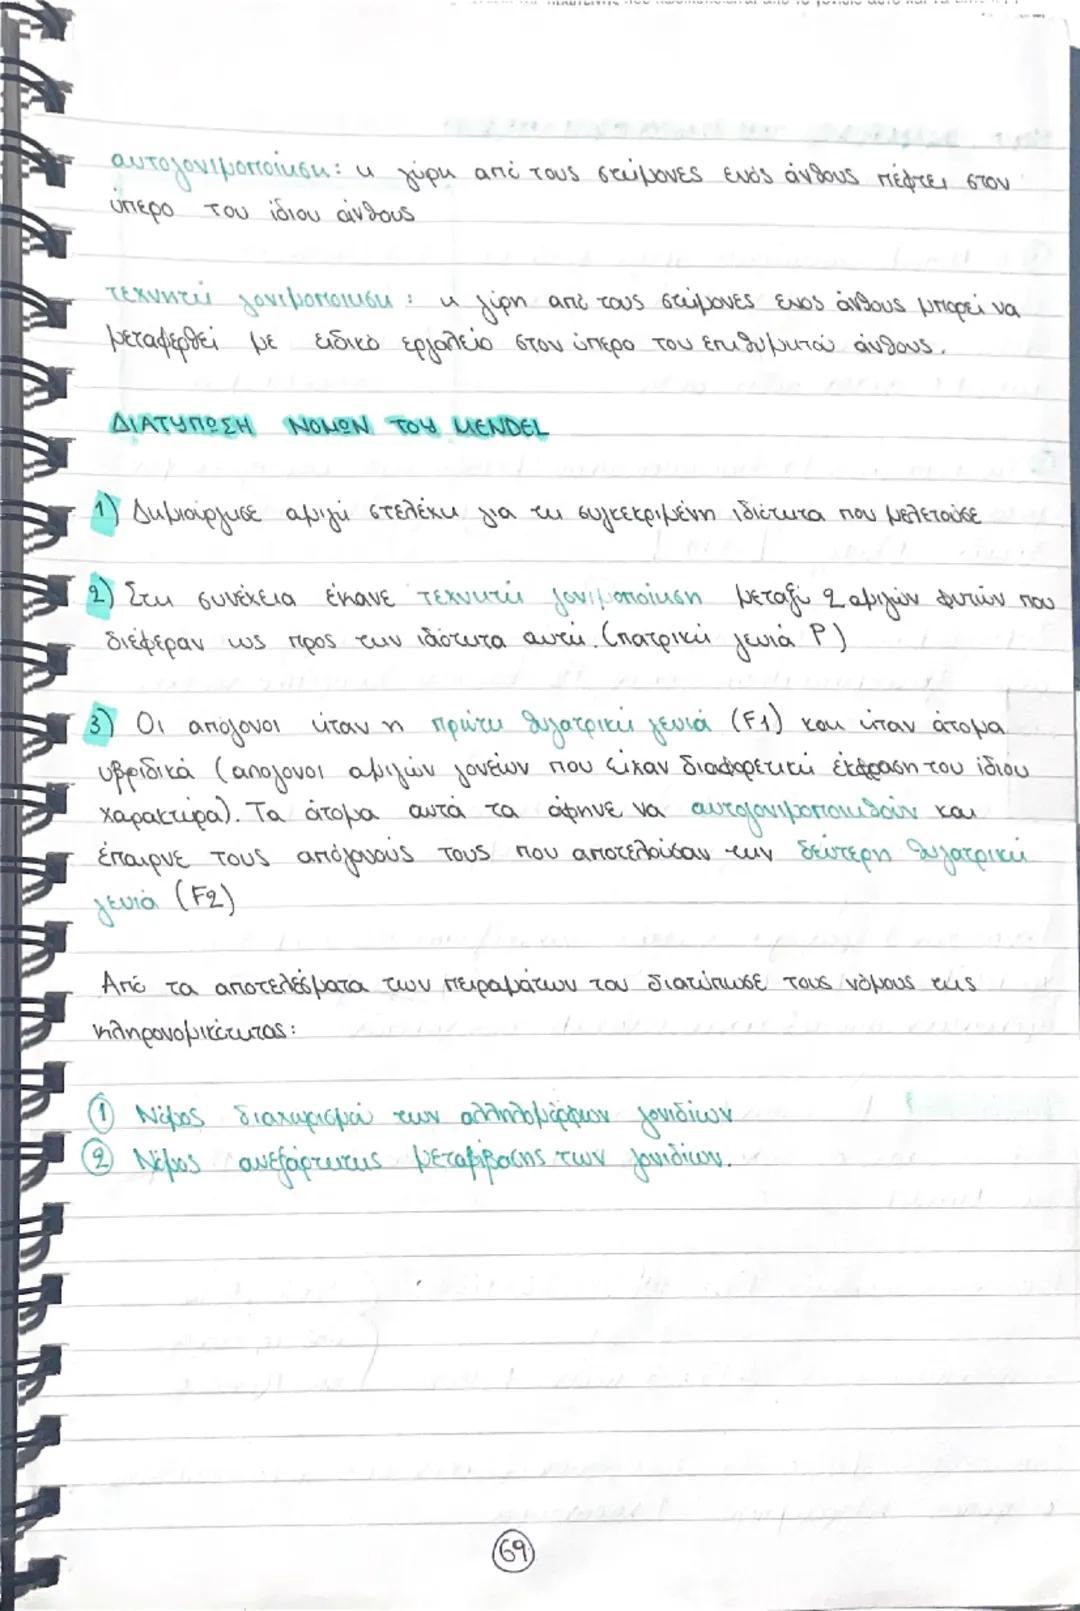 αυτογονιμοποίηση: η γύρη από τους στήμονες ενός άνθους πέφτει στον
ύπερο του ίδιου άνθους
τεχνητή γονιμοποίηση: η γύρη από τους στήμονες ενός άνθους μπορεί να
μεταφερθεί με ειδικό εργαλείο στον ύπερο του επιθυμητού άνθους.
ΔΙΑΤΥΠΩΣΗ ΝΟΜΩΝ ΤΟΥ MENDEL
1) Δημιούργησε αμιγή στελέχη για τη συγκεκριμένη ιδιότητα που μελετούσε
2) Στη συνέχεια έκανε τεχνητή γονιμοποίηση μεταξύ 2 αμιγών φυτών που
διέφεραν ως προς την ιδιότητα αυτή. (πατρική γενιά P)
3) Οι απόγονοι ήταν η πρώτη θυγατρική γενιά (F1) και ήταν άτομα
υβριδικά (απόγονοι αμιγών γονέων που είχαν διαφορετική έκφραση του ίδιου
χαρακτήρα). Τα άτομα αυτά τα άφηνε να αυτογονιμοποιηθούν και
έπαιρνε τους απόγονους τους που αποτελούσαν την δεύτερη θυγατρική
γενιά (F2)
Από τα αποτελέσματα των πειραμάτων του διατύπωσε τους νόμους της
κληρονομικότητας:
① Νόμος διαχωρισμού των αλληλόμορφων γονιδίων
② Νόμος ανεξάρτητης μεταβίβασης των γονιδίων.
69